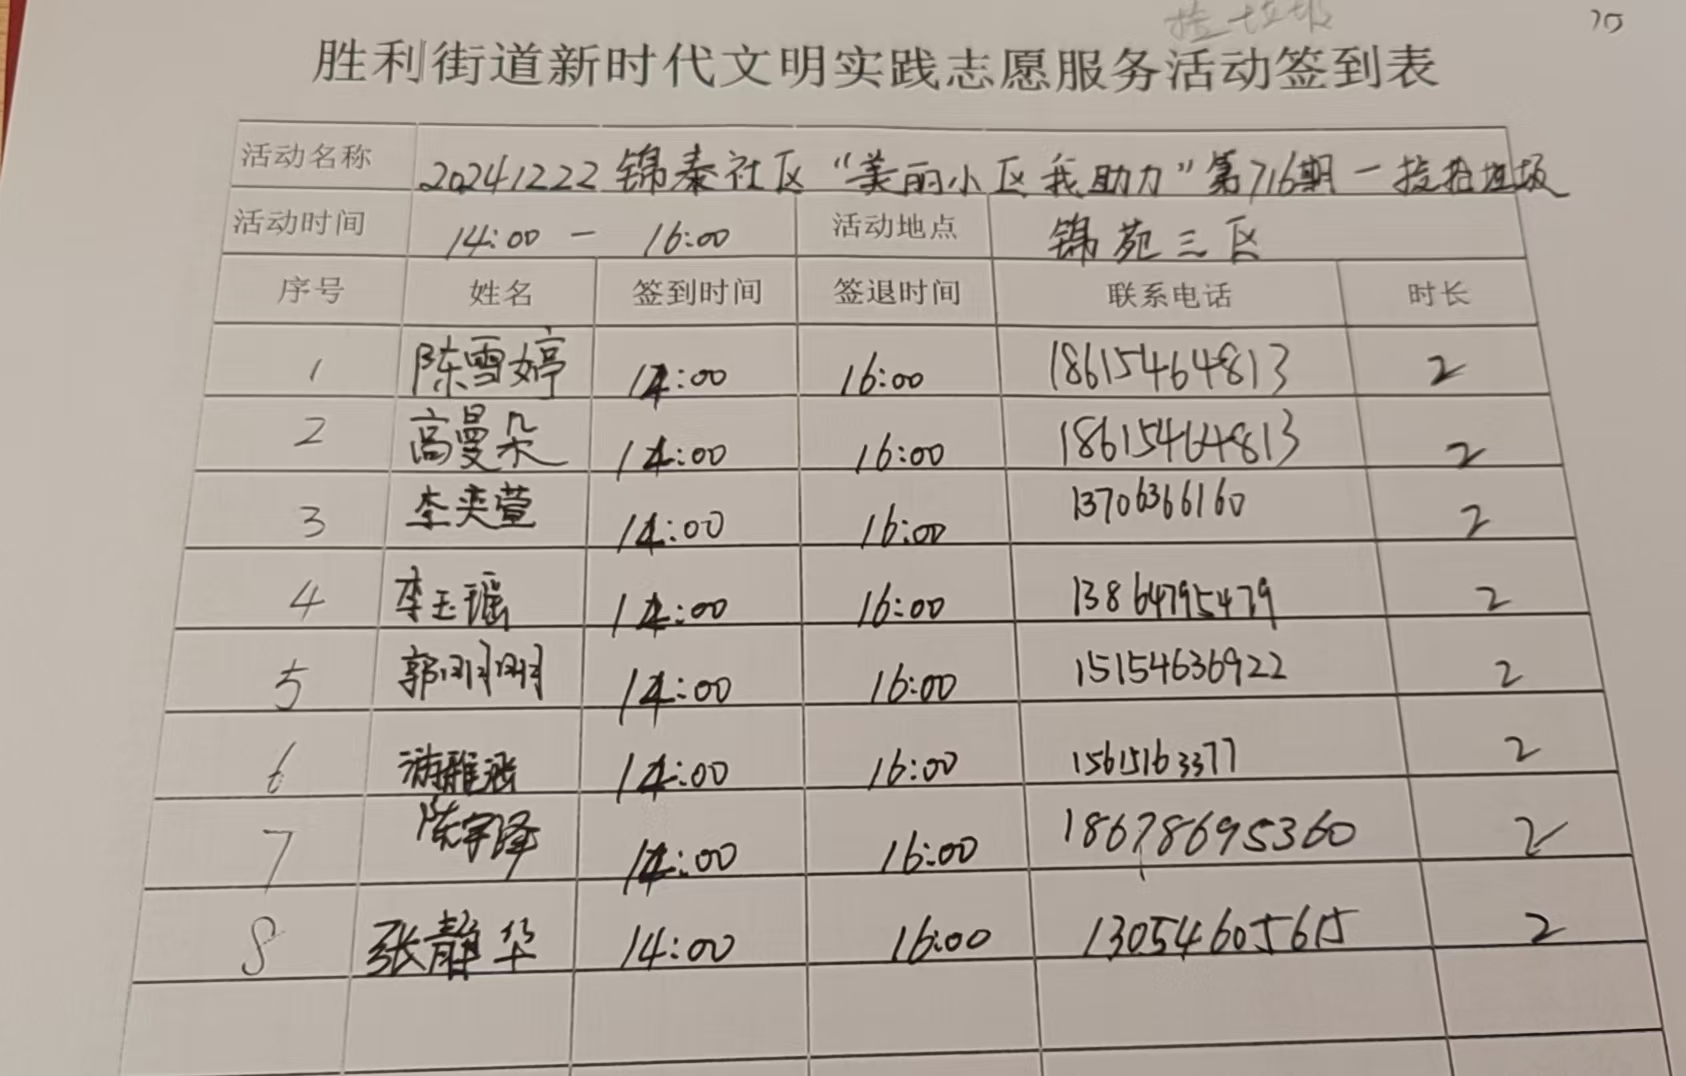 捡垃圾
胜利街道新时代文明实践志愿服务活动签到表
活动名称 20241222 锦泰社区“美丽小区我助力”第716期一捡拾垃圾
活动时间 14:00 - 16:00 活动地点 锦苑三区
序号 姓名 签到时间 签退时间 联系电话 时长
1 陈雪婷 14:00 16:00 18615464813 2
2 高曼朵 14:00 16:00 18615464813 2
3 李奕萱 14:00 16:00 13706366160 2
4 李玉瑶 14:00 16:00 13864795479 2
5 郭玥玥 14:00 16:00 15154636922 2
6 游雅涵 14:00 16:00 15615163377 2
7 陈宇泽 14:00 16:00 18678695360 2
8 张静华 14:00 16:00 13054605615 2